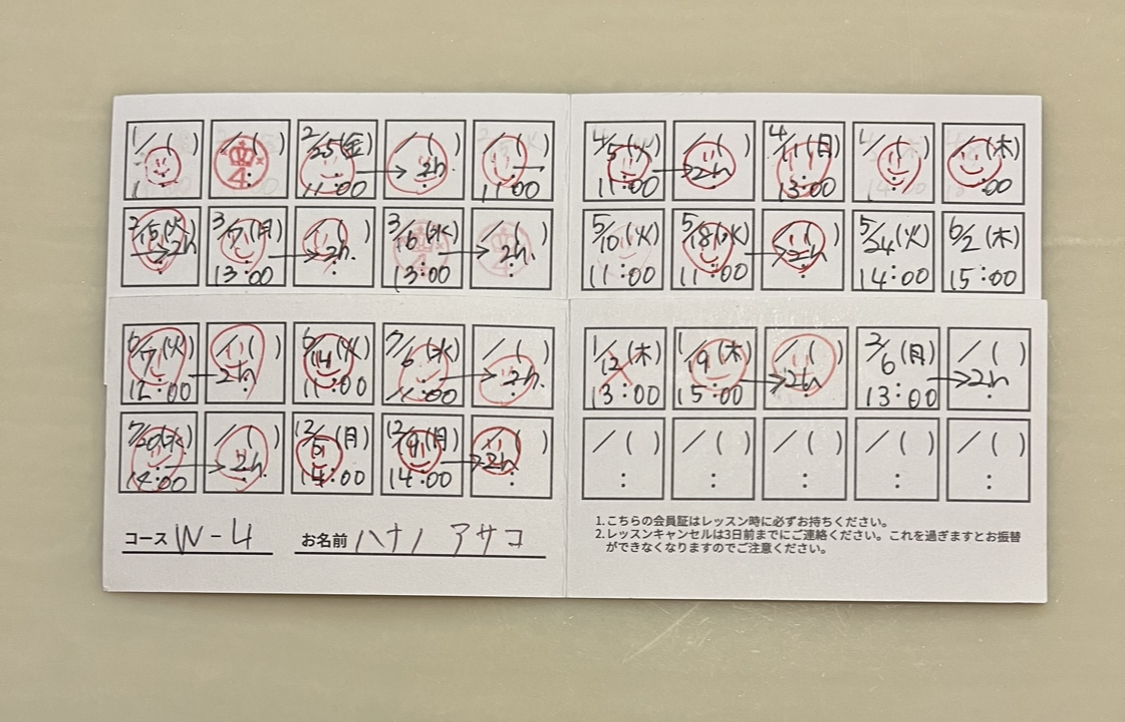 2/25(金) 11:00 → 2h.
11:00
→2h
3/7(月) 13:00 → 2h.
3/6(水) 13:00 → 2h.
4/5(火) 11:00 → 2h
4/11(月) 13:00
(木) :00
5/10(火) 11:00
5/18(水) 11:00 → 2h
5/24(火) 14:00
6/2(木) 15:00
6/7(火) 12:00 → 2h
6/14(火) 11:00
7/6(水) 11:00 → 2h.
7/20(水) 14:00 → 2h.
12/5(月) 14:00
12/19(月) 14:00 → 2h
コース W-4 お名前 ハナノ アサコ
1/12(木) 13:00
1/19(木) 15:00 → 2h
2/6(月) 13:00 → 2h
/( ) : /( ) : /( ) : /( ) : /( ) :
1.こちらの会員証はレッスン時に必ずお持ちください。
2.レッスンキャンセルは3日前までにご連絡ください。これを過ぎますとお振替
ができなくなりますのでご注意ください。